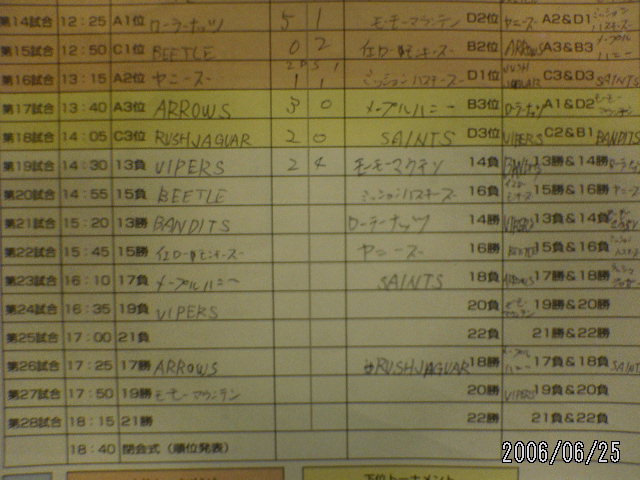 第14試合 12:25 A1位 ローラーナッツ 5 1 モーモーマウンテン D2位 ヤニーズ A2&D1
第15試合 12:50 C1位 BEETLE 0 2 B2位 ARROWS A3&B3
第16試合 13:15 A2位 ヤニーズ 1 1 ミッションハスキーズ D1位 RUSH JAGUAR C3&D3 SAINTS
第17試合 13:40 A3位 ARROWS 3 0 メープルハニー B3位 ローラーナッツ A1&D2
第18試合 14:05 C3位 RUSHJAGUAR 2 0 SAINTS D3位 VIPERS C2&B1 BANDITS
第19試合 14:30 13負 VIPERS 2 4 モーモーマウンテン 14負 13勝&14勝
第20試合 14:55 15負 BEETLE ミッションハスキーズ 16負 15勝&16勝 ヤニーズ
第21試合 15:20 13勝 BANDITS ローラーナッツ 14勝 VIPERS 13負&14負
第22試合 15:45 15勝 ヤニーズ 16勝 BEETLE 15負&16負
第23試合 16:10 17負 メープルハニー SAINTS 18負 ARROWS 17勝&18勝
第24試合 16:35 19負 VIPERS 20負 モーモーマウンテン 19勝&20勝
第25試合 17:00 21負 22負 21勝&22勝
第26試合 17:25 17勝 ARROWS RUSHJAGUAR 18勝 メープルハニー 17負&18負 SAINTS
第27試合 17:50 19勝 モーモーマウンテン 20勝 VIPERS 19負&20負
第28試合 18:15 21勝 22勝 21負&22負
18:40 閉会式(順位発表)
下位トーナメント
2006/06/25